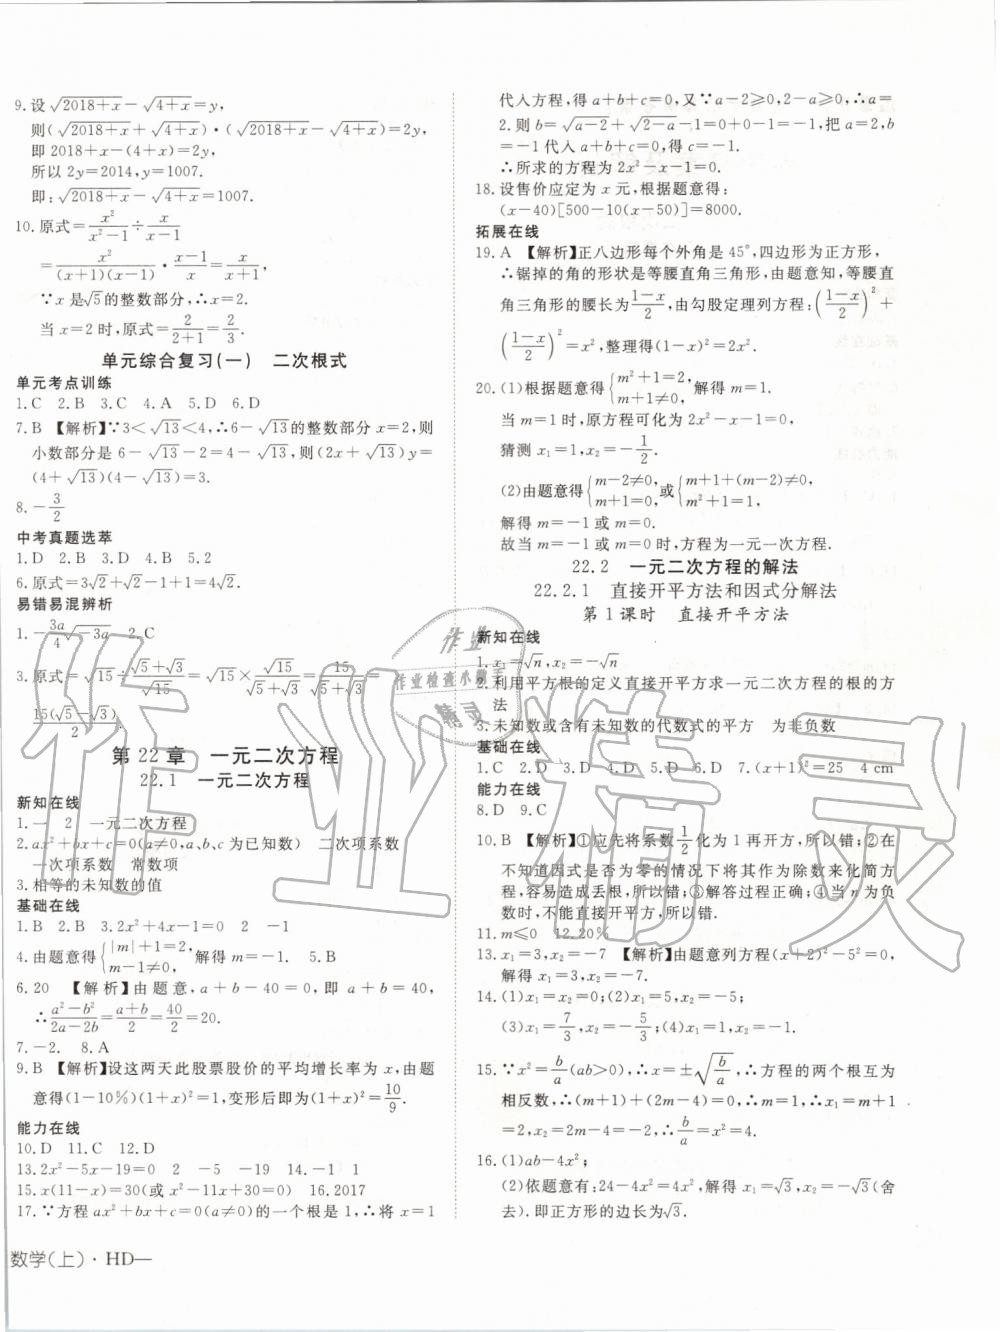 9. 设√(2018+x)－√(4+x)=y,
则(√(2018+x)+√(4+x))·(√(2018+x)－√(4+x))=2y,
即 2018+x－(4+x)=2y,
所以 2y=2014,y=1007.
即:√(2018+x)－√(4+x)=1007.
10. 原式=x²/(x²－1)÷x/(x－1)
=x²/((x+1)(x－1))·(x－1)/x=x/(x+1),
∵x 是√5的整数部分,∴x=2.
当 x=2时,原式=2/(2+1)=2/3.
单元综合复习(一) 二次根式
单元考点训练
1. C 2. B 3. C 4. A 5. D 6. D
7. B 【解析】∵3<√13<4,∴6－√13的整数部分 x=2,则
小数部分是 6－√13－2=4－√13,则(2x+√13)y=
(4+√13)(4－√13)=3.
8. －3/2
中考真题选萃
1. D 2. B 3. D 4. B 5. 2
6. 原式=3√2+√2－1+1=4√2.
易错易混辨析
1. －3a/4√(－3a) 2. C
3. 原式=√15÷(√5+√3)/√15=√15×√15/(√5+√3)=15/(√5+√3)=
15(√5－√3)/2.
第 22 章 一元二次方程
22.1 一元二次方程
新知在线
1. 一 2 一元二次方程
2. ax²+bx+c=0(a≠0,a、b、c为已知数) 二次项系数
一次项系数 常数项
3. 相等的未知数的值
基础在线
1. B 2. B 3. 2x²+4x－1=0 2 －1
4. 由题意得{|m|+1=2, m－1≠0, 解得 m=－1. 5. B
6. 20 【解析】由题意,a+b－40=0,即 a+b=40,
∴(a²－b²)/(2a－2b)=(a+b)/2=40/2=20.
7. －2. 8. A
9. B 【解析】设这两天此股票股价的平均增长率为 x,由题
意得(1－10%)(1+x)²=1,变形后即为(1+x)²=10/9.
能力在线
10. D 11. C 12. D
13. 2x²－5x－19=0 2 －5 －19 14. －1 1
15. x(11－x)=30(或 x²－11x+30=0) 16. 2017
17. ∵方程 ax²+bx+c=0(a≠0)的一个根是 1,∴将 x=1
代入方程,得 a+b+c=0,又∵a－2≥0,2－a≥0,∴a=
2. 则 b=√(a－2)+√(2－a)－1=0+0－1=－1,把 a=2,b
=－1 代入 a+b+c=0,得 c=－1.
∴所求的方程为 2x²－x－1=0.
18. 设售价应定为 x 元,根据题意得:
(x－40)[500－10(x－50)]=8000.
拓展在线
19. A 【解析】正八边形每个外角是 45°,四边形为正方形,
∴锯掉的角的形状是等腰直角三角形,由题意知,等腰直
角三角形的腰长为(1－x)/2,由勾股定理列方程:((1－x)/2)²+
((1－x)/2)²=x²,整理得(1－x)²=2x².
20. (1)根据题意得{m²+1=2, m+1≠0, 解得 m=1.
当 m=1 时,原方程可化为 2x²－x－1=0,
猜测 x₁=1,x₂=－1/2.
(2)由题意得{m－2≠0, m+1=0, 或{m+1+(m－2)≠0, m²+1=1,
解得 m=－1 或 m=0.
故当 m=－1 或 m=0 时,方程为一元一次方程.
22.2 一元二次方程的解法
22.2.1 直接开平方法和因式分解法
第 1 课时 直接开平方法
新知在线
1. x₁=√n,x₂=－√n
2. 利用平方根的定义直接开平方求一元二次方程的根的方
法
3. 未知数或含有未知数的代数式的平方 为非负数
基础在线
1. C 2. D 3. D 4. D 5. D 6. D 7. (x+1)²=25 4 cm
能力在线
8. D 9. C
10. B 【解析】①应先将系数1/2化为 1 再开方,所以错;②在
不知道因式是否为零的情况下将其作为除数来化简方
程,容易造成丢根,所以错;③解答过程正确;④当 n 为负
数时,不能直接开平方,所以错.
11. m≤0 12. 20%
13. x₁=3,x₂=－7 【解析】由题意列方程(x+2)²－5²=0,
解得 x₁=3,x₂=－7.
14. (1)x₁=x₂=0;(2)x₁=5,x₂=－5;
(3)x₁=7/3,x₂=－5/3;(4)x₁=1,x₂=－1.
15. ∵x²=b/a(ab>0),∴x=±√(b/a),∴方程的两个根互为
相反数,∴(m+1)+(2m－4)=0,∴m=1,∴x₁=m+1
=2,x₂=2m－4=－2,∴b/a=x²=4.
16. (1)ab－4x²;
(2)依题意有:24－4x²=4x²,解得 x₁=√3,x₂=－√3(舍
去).即正方形的边长为√3.
数学(上)·HD—
作业
作业检查小帮手
精灵
作业精灵